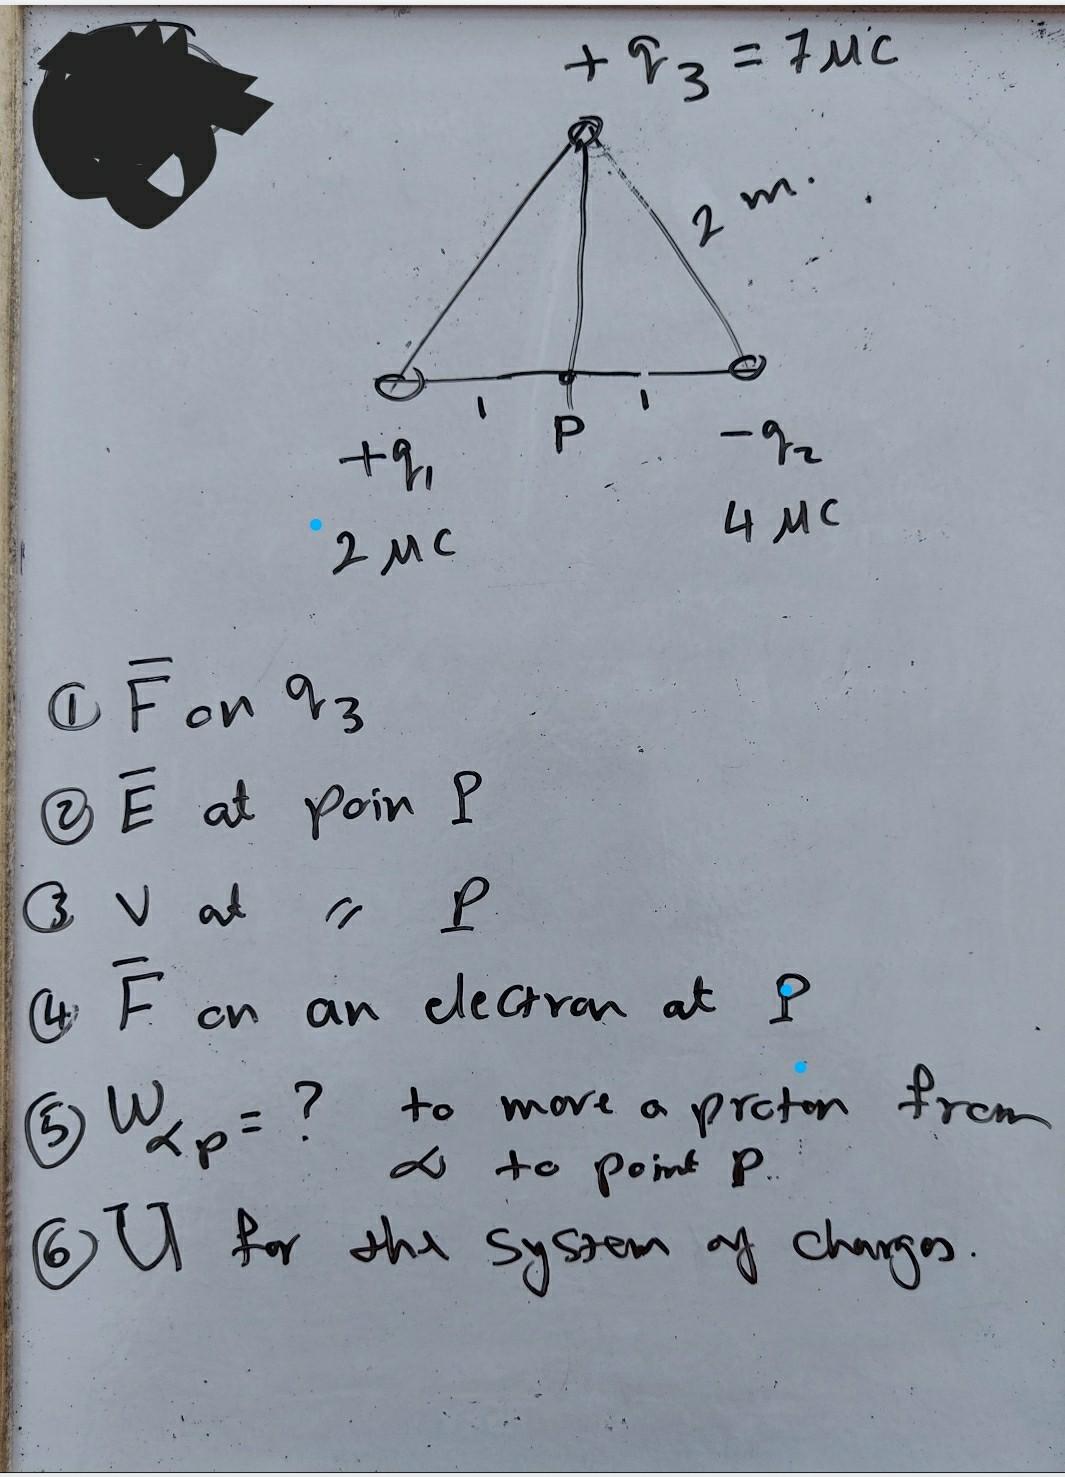 + q3 = 7 μC
2 m.
1 P 1
+q1 -q2
2 μC 4 μC
① F̅ on q3
② E̅ at poin P
③ V at 〃 P
④ F̅ on an electron at P
⑤ W∝p = ? to move a proton from
∝ to point P.
⑥ U for the system of charges.